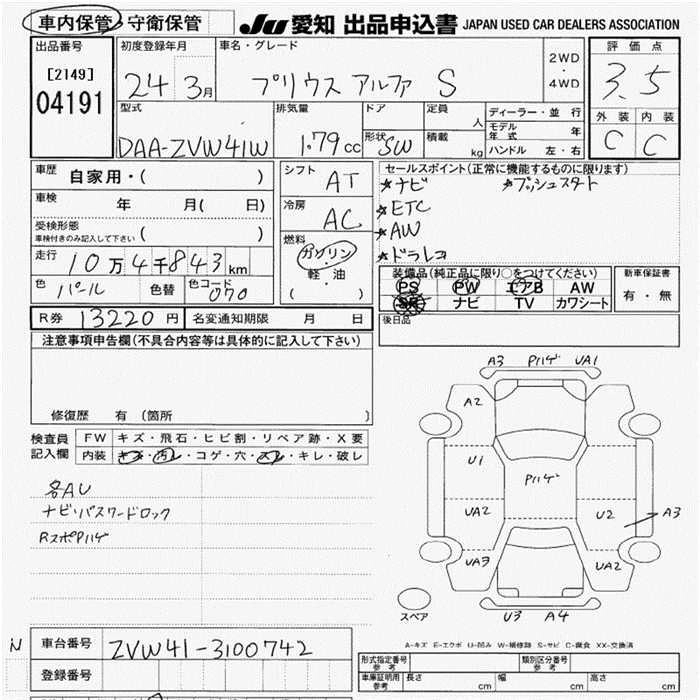 車内保管・守衛保管 JU 愛知 出品申込書 JAPAN USED CAR DEALERS ASSOCIATION
出品番号 初度登録年月 車名・グレード 2WD・4WD 評価点
[2149] 24 3月 プリウス アルファ S 3.5
04191
型式 排気量 ドア 定員 人 ディーラー・並行 外装 内装
DAA-ZVW41W 1.79cc 形状 SW 積載 kg モデル年式 年 C C
ハンドル 左・右
車歴 自家用・( ) シフト AT セールスポイント(正常に機能するものに限ります)
★ナビ ★プッシュスタート
車検 年 月( 日) 冷房 AC ★ETC
受検形態 ( ) ★AW
車検付きのみ記入して下さい
走行 10万4千843km 燃料 ガソリン・軽・油 ( ) ★ドラレコ
色 パール 色替 色コード 070
装備品(純正品に限り○をつけてください) 新車保証書
PS PW エアB AW 有・無
SR ナビ TV カワシート
R券 13220円 名変通知期限 月 日 後日品
注意事項申告欄(不具合内容等は具体的に記入して下さい)
修復歴 有(箇所 )
検査員記入欄 FW キズ・飛石・ヒビ割・リペア跡・X要
内装 キズ・汚レ・コゲ・穴・スレ・キレ・破レ
各AU
ナビ・パスワードロック
RスポPハゲ
A3 Pハゲ UA1
A2
U1 Pハゲ
UA2 U2 A3
UA3 UA2
スペア U3 A4
A-キズ E-エクボ U-凹み W-補修跡 S-サビ C-腐食 XX-交換済
N 車台番号 ZVW41-3100742
登録番号
形式指定番号 参考 類別区分番号 参考
車庫証明用 参考 長さ cm 幅 cm 高さ cm